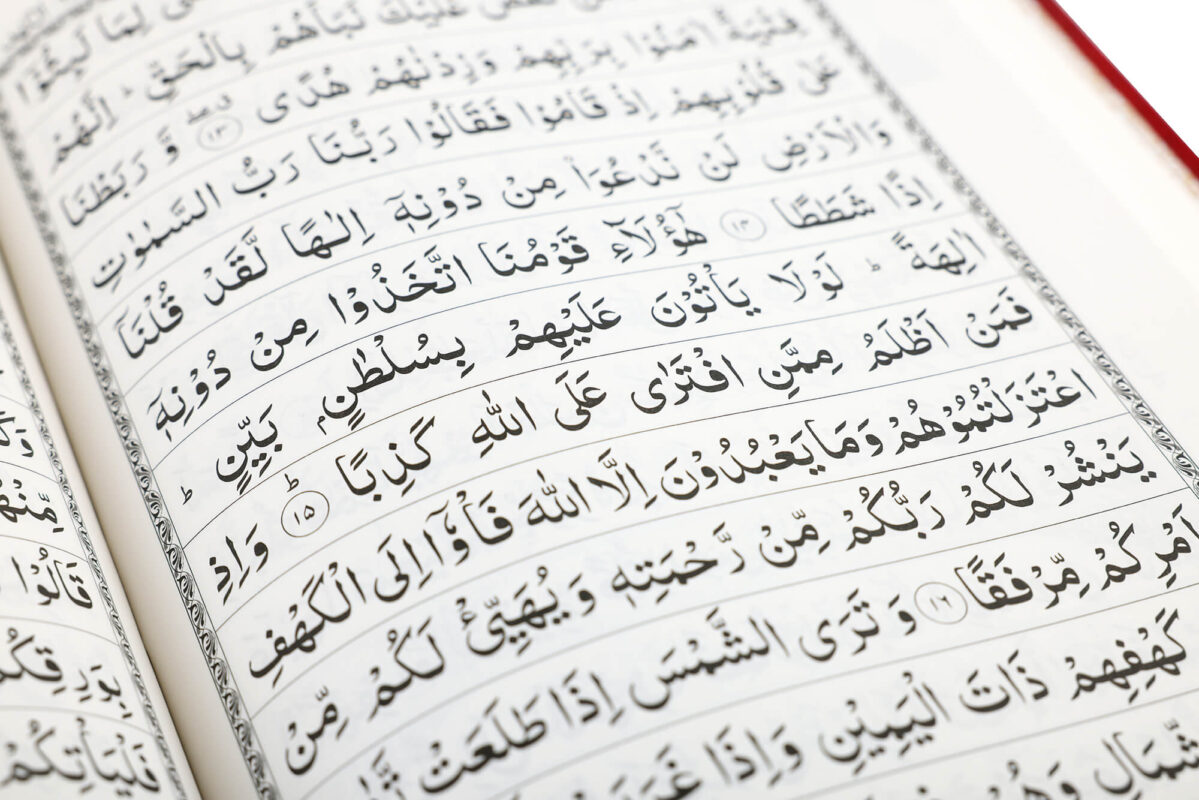 لِمَا لَبِثُوْۤا
عَلَيْكَ نَبَاَهُمْ بِالْحَقِّ ؕ اِنَّهُمْ
فِتْيَةٌ اٰمَنُوْا بِرَبِّهِمْ وَزِدْنٰهُمْ هُدًى ۱۳ وَّ رَبَطْنَا
عَلٰى قُلُوْبِهِمْ اِذْ قَامُوْا فَقَالُوْا رَبُّنَا رَبُّ السَّمٰوٰتِ
وَالْاَرْضِ لَنْ نَّدْعُوَا۟ مِنْ دُوْنِهٖۤ اِلٰهًا لَّقَدْ قُلْنَاۤ
اِذًا شَطَطًا ۱۴ هٰۤؤُلَآءِ قَوْمُنَا اتَّخَذُوْا مِنْ دُوْنِهٖۤ
اٰلِهَةً ؕ لَوْلَا يَاْتُوْنَ عَلَيْهِمْ بِسُلْطٰنٍۭ بَيِّنٍ ؕ
فَمَنْ اَظْلَمُ مِمَّنِ افْتَرٰى عَلَى اللّٰهِ كَذِبًا ؕ ۱۵ وَاِذِ
اعْتَزَلْتُمُوْهُمْ وَمَا يَعْبُدُوْنَ اِلَّا اللّٰهَ فَاْوٗۤا اِلَى الْكَهْفِ
يَنْشُرْ لَكُمْ رَبُّكُمْ مِّنْ رَّحْمَتِهٖ وَيُهَيِّئْ لَكُمْ مِّنْ
اَمْرِكُمْ مِّرْفَقًا ۱۶ وَتَرَى الشَّمْسَ اِذَا طَلَعَتْ
كَهْفِهِمْ ذَاتَ الْيَمِيْنِ وَاِذَا
الشِّمَالِ وَهُمْ
قَالُوْا
بِوَرِقِكُمْ
فَلْيَاْتِكُمْ